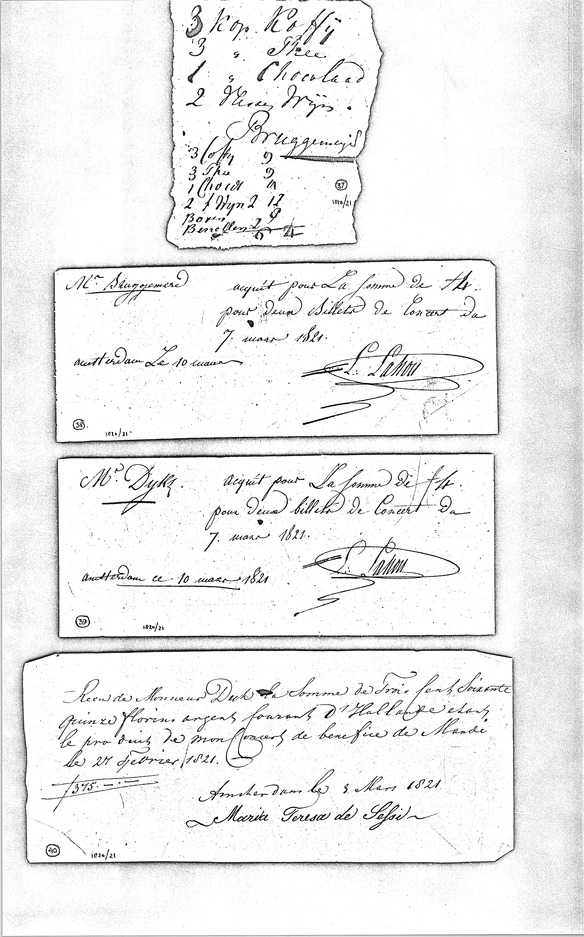 3 Kop Koffÿ
3 " Thee
1 " Chocolaad
2 Wÿn.
3 Coffy 9
3 Thee 9
1 Chocol
2 f Wyn 2 12
Boven 9
6 4
37
1820/21
Mr. Bruggemeyer
acquit pour La Somme de f4.
pour deux Billets de Concert du
7. maar 1821.
amsterdam Le 10 maar
L. Lahou
38
1820/21
Mr. Dyk.
acquit pour La Somme de f4.
pour deux billets de Concert du
7. maar 1821.
L. Lahou
amsterdam ce 10 maar 1821
39
1820/21
Recu de Monsieur Dyk La Somme de Trois Cent Soixante
quinze florins argent Courant d'Hollande etant
le produit de mon Concert de benefice de Mardi
le 27 Fevrier 1821.
f375.-.-
Amsterdam le 3 Mars 1821
Maria Teresa de Sessi
40
1820/21